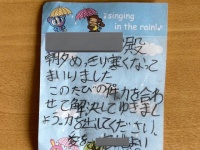 ♪singing
in the rain!♪
殿
朝夕めっきり寒くなって
まいりました
このたびの件力を合わ
せて解決してゆきまし
ょう。力を出してください。
より